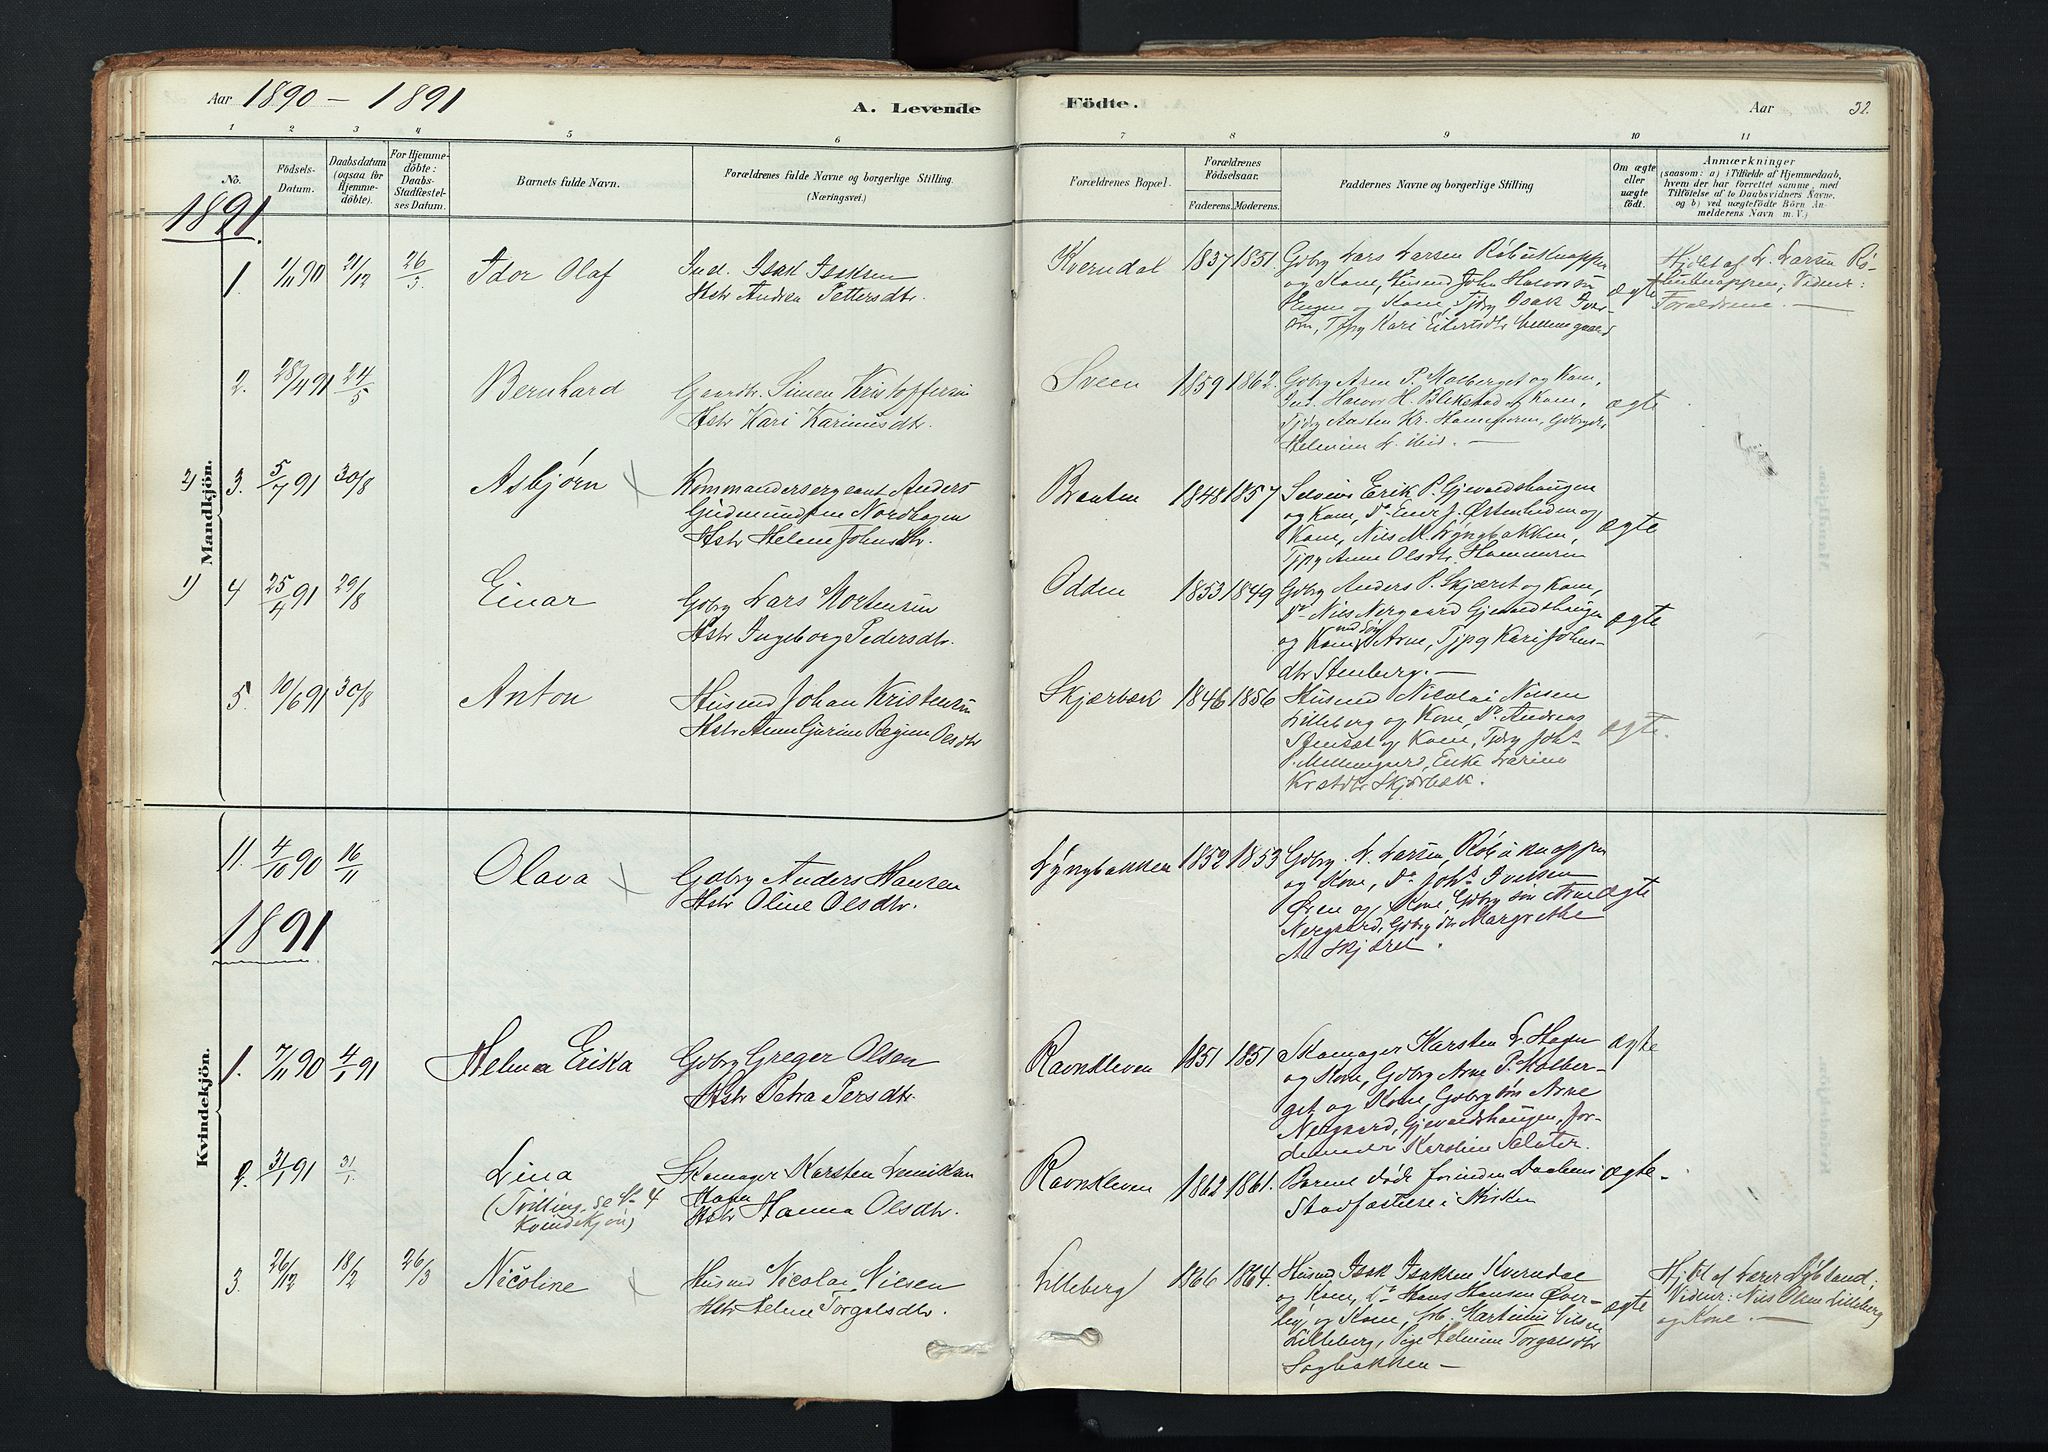 Aar 1890 - 1891
A. Levende
Födte.
Aar
32.
1 2 3 4 5 6 7 8 9 10 11
No.
Födsels-Datum.
Daabsdatum (ogsaa for Hjemme-döbte).
For Hjemme-döbte: Daabs-Stadfæstel-ses Datum.
Barnets fulde Navn.
Forældrenes fulde Navne og borgerlige Stilling.
(Næringsvei.)
Forældrenes Bopæl.
Forældrenes Födselsaar.
Faderens. Moderens.
Faddernes Navne og borgerlige Stilling
Om ægte eller uægte födt.
Anmærkninger
(saasom: a) i Tilfælde af Hjemmedaab, hvem der har forrettet samme, med Tilföielse af to Daabsvidners Navne, og b) ved uægtefödte Börn Anmelderens Navn m. V.)
1891.
Mandkjön.
1. 1/11 90 21/12 26/3 Idor Olaf
Ind. Isak Isaksen
Hstr Andrea Pettersdtr.
Kverndal 1837 1851
Gbby Lars Larsen
og Kone, Husmd John Halvorsen
Engen og Kone, Tjdrg Isak
Tjpg Kari
ægte
Hjdbt af L. Larsen Rö-
Vidner:
Forældrene. —
2. 28/4 91 24/5 Bernhard
Gaardbr. Simen Kristoffersen
Hstr Kari Karinusdtr.
Sveen 1859 1862.
Gbbrg Arne P. Kolberget og Kone,
Ind. Halvor H. Blikstad og Kone,
Tjdrg Aasten Kr.
ibid. —
ægte
2) 3. 5/7 91 30/8 Asbjørn
Kommandersergeant Anders
Gudmundsen Nordhagen
Hstr Helene Johnsdtr.
Braaten 1848 1857
Selveier Erik P. Gjevaldshaugen
og Kone, Do Einar J. Østenheden og
Kone, Nils M. Lyngbakken,
Tjpg Anne Olsdtr Hammeren
ægte
1) 4 25/4 91 29/8 Einar
Gbbrg Lars Mortensen
Hstr Ingeborg Pedersdtr.
Odden 1853 1849
Gbbrg Anders P. Skjæret og Kone,
Do Nils Nergaard Gjevaldshaugen
og Kone med Søn Arne, Tjpg Kari Johns-
dtr Stenberg. —
ægte
5. 10/6 91 30/8 Anton
Husmd Johan Kristensen
Hstr Anne Gurine Regine Olsdtr
Skjærbæk 1846 1856
Husmd Nicolai Nilsen
Lilleberg og Kone, Do Andreas
Stensæt og Kone, Tjdrg Johs
P. Mellemgaard, Enke Karine
Kristdtr Skjærbæk.
ægte.
11. 4/10 90 16/11 Olava
Gbbrg Anders Hansen
Hstr Oline Olsdtr.
Lyngbakken 1852 1853
Gbbrg. L. Larsen,
og Kone, Do Johs Iversen
Øren og Kone, Gbbrg søn Arne
Nergaard, Gbbrg dtr Margrethe
A. Skjæret.
ægte
1891.
Kvindekjön.
1. 7/11 90 4/1 91 Helma Erika
Gbbrg Greger Olsen
Hstr Petra Persdtr.
Ravnkleven 1851 1851
Skomager Karsten L. Hagen
og Kone, Gbbrg Arne P. Kolber-
get og Kone, Gbbrg søn Arne
Nergaard, Gjevaldshaugen, Jor-
demoder Karoline Sæluter.
ægte
2. 31/1 91 31/1 Lina
(Tvilling. se No 4
Kvindekjøn)
Skomager Karsten
Hagen
Hstr Hanna Olsdtr.
Ravnkleven 1862 1861.
Barnet døde forinden Daabens
Stadfæstelse i Kirken
ægte.
3. 26/12 18/2 26/3 Nicoline
Husmd Nicolai Nilsen
Hstr Helene Torgalsdtr.
Lilleberg 1866 1864.
Husmd Isak Isaksen Kverndal
og Kone, Do Hans Hansen Øver-
og Kone, Martinus Nilsen
Lilleberg, Pige Helmine Torgalsdtr
Sagbakken —
ægte
Hjdbt af Lærer Nybsund;
Vidner: Nils Olsen Lilleberg
og Kone. —